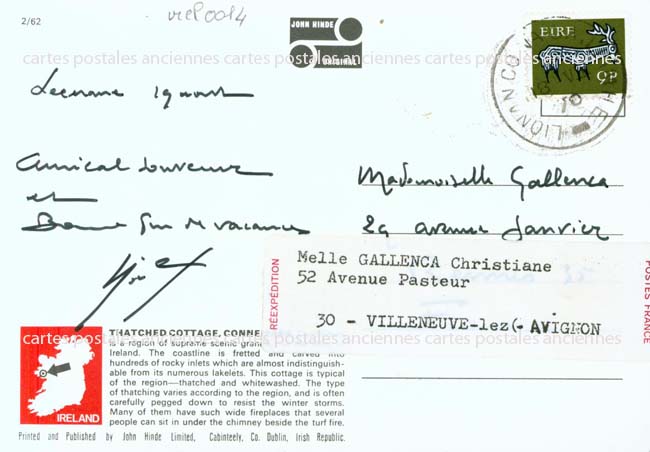 vieP0014
2/62
JOHN HINDE
ORIGINAL
EIRE
9P
cartes postales anciennes cartes postales anciennes cartes postales anciennes
Leenane 19 août
Amical souvenir
et
Bonne fin de vacances
Mademoiselle Gallenca
29 avenue Janvier
RÉEXPÉDITION
Melle GALLENCA Christiane
52 Avenue Pasteur
30 - VILLENEUVE-lez(- AVIGNON
POSTES FRANCE
THATCHED COTTAGE, CONNE
is a region of supreme scenic gran
Ireland. The coastline is fretted and carved into
hundreds of rocky inlets which are almost indistinguish-
able from its numerous lakelets. This cottage is typical
of the region—thatched and whitewashed. The type
of thatching varies according to the region, and is often
carefully pegged down to resist the winter storms.
Many of them have such wide fireplaces that several
people can sit in under the chimney beside the turf fire.
IRELAND
Printed and Published by John Hinde Limited, Cabinteely, Co. Dublin, Irish Republic.